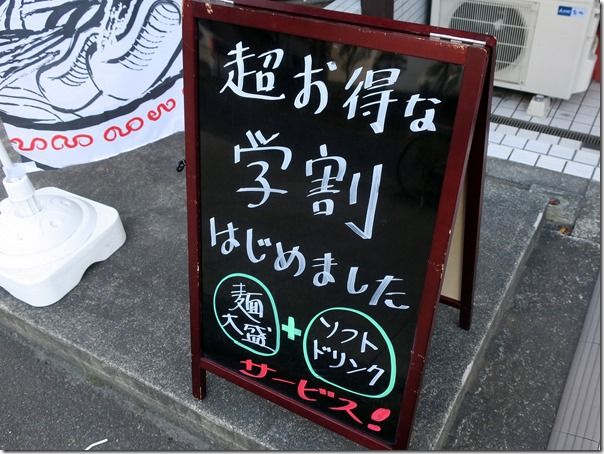 超お得な
学割
はじめました
麺大盛
+
ソフトドリンク
サービス!